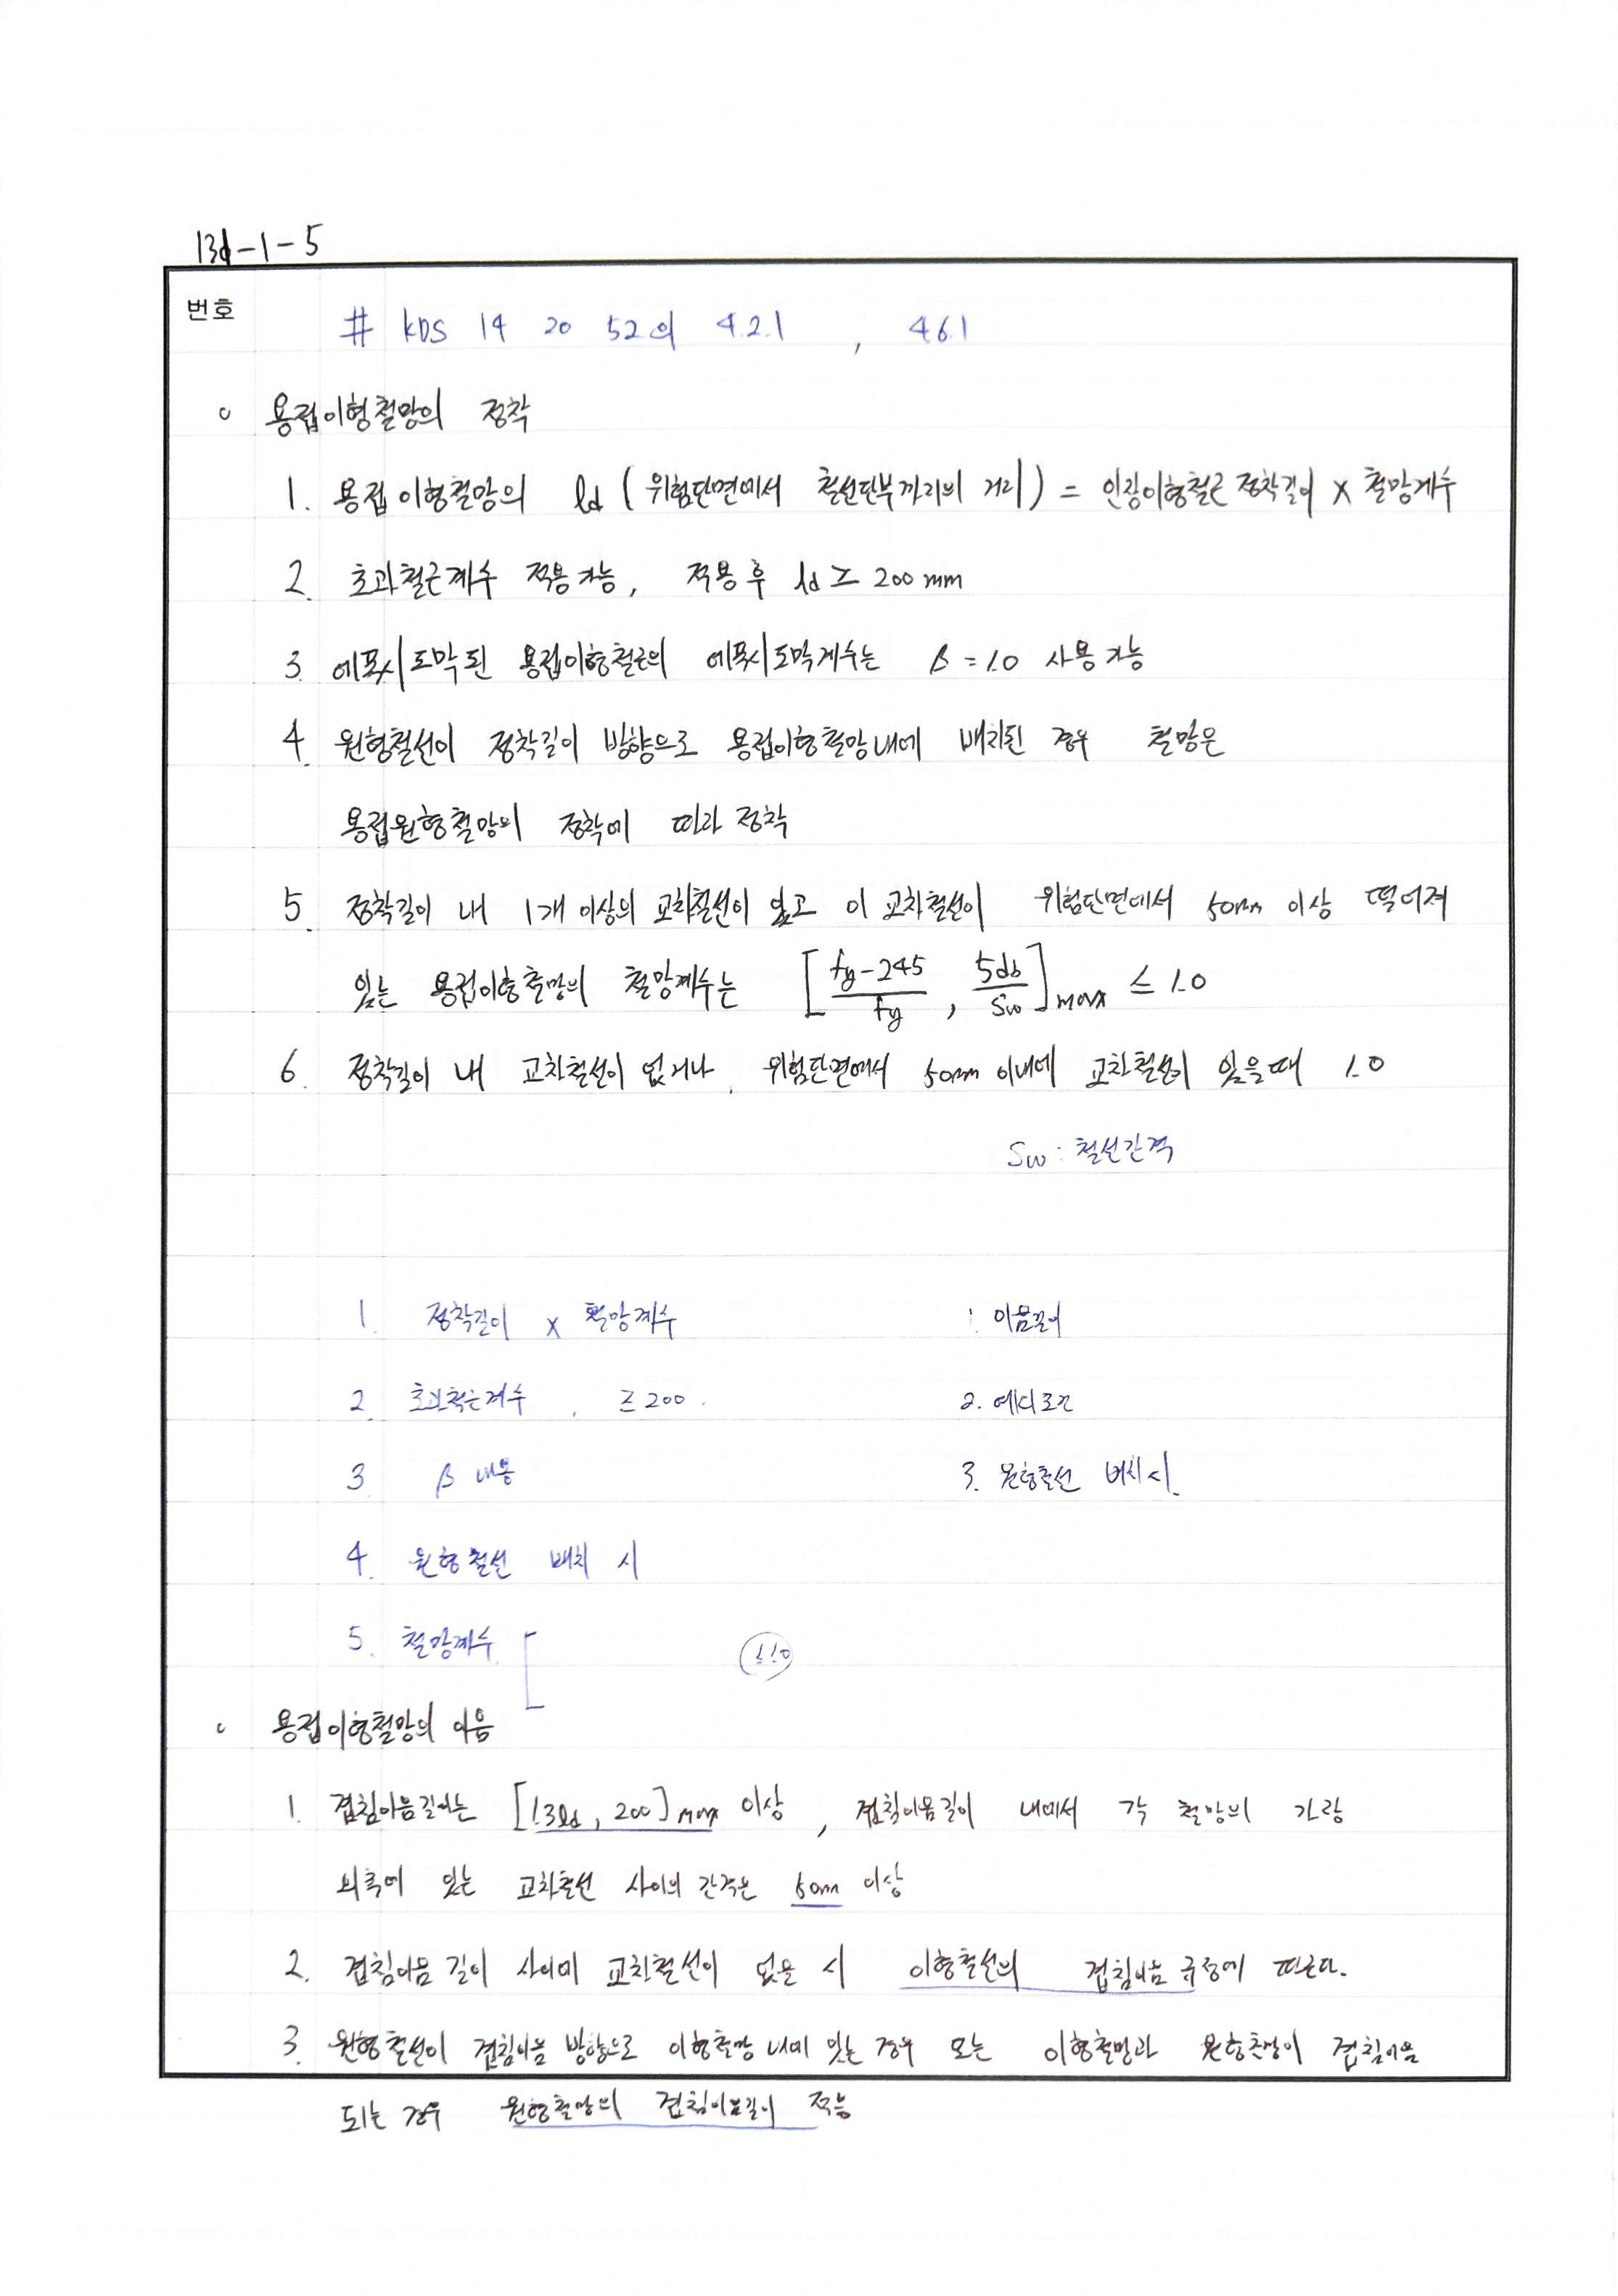 13d-1-5
번호
# KDS 14 20 52의 4.2.1 , 4.6.1
○ 용접이형철망의 정착
1. 용접이형철망의 ld (위험단면에서 철선단부까지의 거리) = 인장이형철근 정착길이 × 철망계수
2. 초과철근계수 적용가능, 적용 후 ld ≥ 200mm
3. 에폭시도막된 용접이형철근의 에폭시도막계수는 β = 1.0 사용가능
4. 원형철선이 정착길이 방향으로 용접이형철망내에 배치된 경우 철망은
용접원형철망의 정착에 따라 정착
5. 정착길이 내 1개 이상의 교차철선이 있고 이 교차철선이 위험단면에서 50mm 이상 떨어져
있는 용접이형철망의 철망계수는 [ (fy-245)/fy , 5db/Sw ]max ≤ 1.0
6. 정착길이 내 교차철선이 없거나, 위험단면에서 50mm 이내에 교차철선이 있을때 1.0
Sw : 철선간격
1. 정착길이 × 철망계수 1. 이음길이
2. 초과철근계수 , ≥ 200. 2.
3. β 내용 3. 원형철선 배치시.
4. 원형철선 배치 시
5. 철망계수 [ ≤1.0
○ 용접이형철망의 이음
1. 겹침이음길이는 [1.3ld, 200]max 이상, 겹침이음길이 내에서 각 철망의 가장
외측에 있는 교차철선 사이의 간격은 50mm 이상
2. 겹침이음 길이 사이에 교차철선이 없을 시 이형철선의 겹침이음 규정에 따른다.
3. 원형철선이 겹침이음 방향으로 이형철망 내에 있는 경우 또는 이형철망과 원형철망이 겹침이음
되는 경우 원형철망의 겹침이음길이 적용